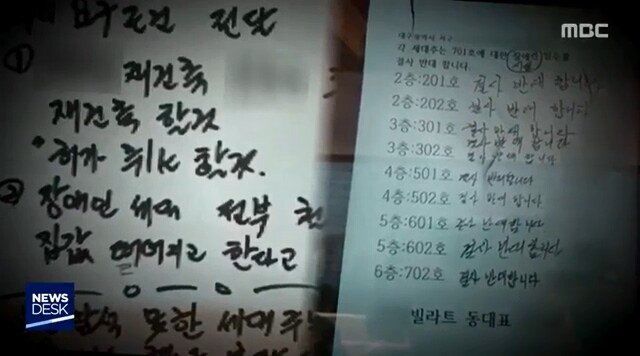 MBC
요구조건 전달
①
재건축
재건축 할것
허가 취소 할것.
② 장애인 세대 전부
집값 떨어지고 한다고
못한 세대주
대구광역시 서구
각 세대주는 701호에 대한 장애인
시설
결사 반대 합니다.
2층:201호 결사 반대 합니다
2층:202호 결사 반대 합니다
3층:301호 결사 반대 합니다
결사 반대 합니다
3층:302호 결사 반대 합니다
4층:501호 결사 반대합니다
4층:502호 결사 반대 합니다
5층:601호 결사 반대합니다
5층:602호 결사 반대 합니다
6층:702호 결사 반대합니다
빌라트 동대표
NEWS
DESK